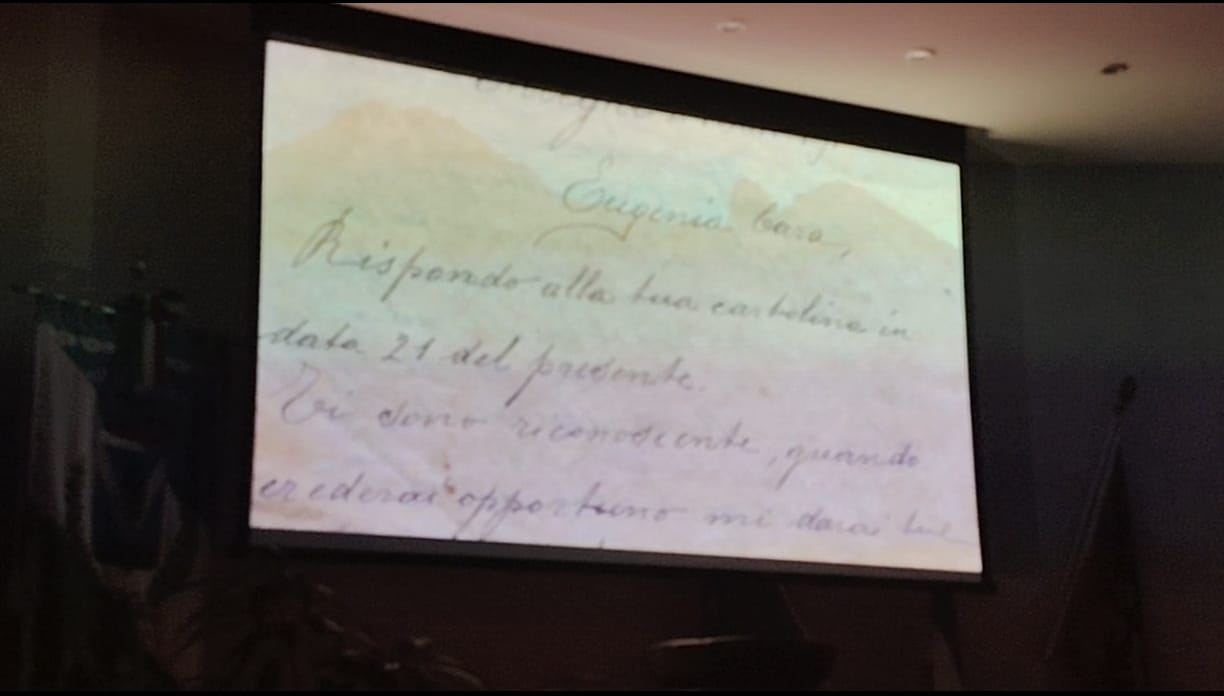 Eugenia Cara,
Rispondo alla tua cartolina in
data 21 del presente.
Ti sono riconoscente, quando
crederai opportuno mi darai tue